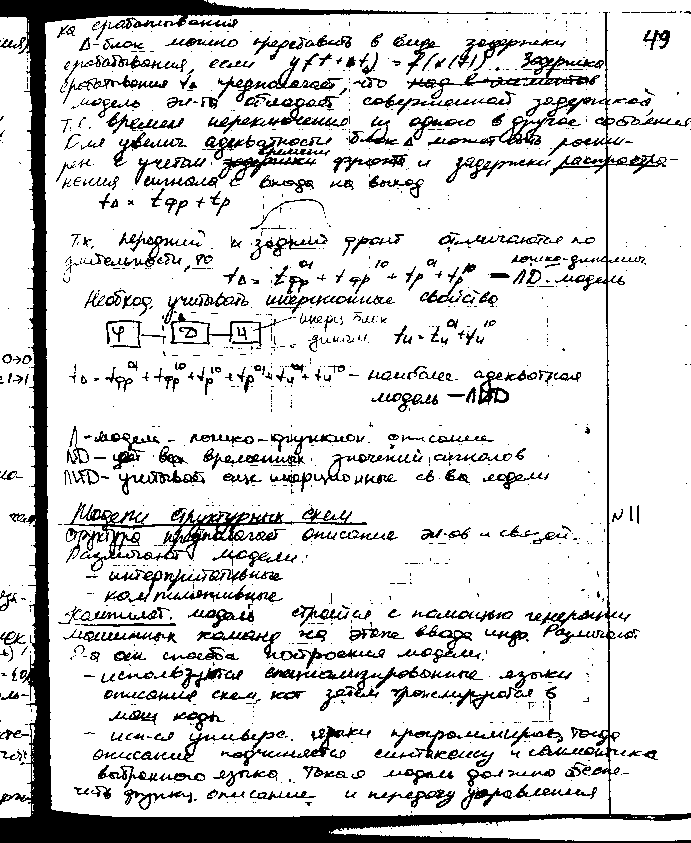 ка срабатывания
49
D-блок можно представить в виде задержки
срабатывания, если y(t+Δt) = f(x(t)). Задержка
срабатывания tз предполагает, что
модель эл-та обладает совершенной задержкой,
т.е. времен переключения из одного в другое состояния
Для увелич адекватности блок D может быть расши-
рен с учетом времени фронта и задержки распростра-
нения сигнала с входа на выход
tD = tфр + tр
Т.к. передний и задний фронт отличаются по
длительности, то логико-динамич
tD = tфр01 + tфр10 + tр01 + tр10 — ЛD-модель
Необход. учитывать инерционные свойства
инерц блок
φ D И динам. tи = tи01 + tи10
tD = tфр01 + tфр10 + tр10 + tр01 + tи01 + tи10 – наиболее адекватная
модель – ЛИD
Л-модель – логико-функцион описание
ЛD – временных значений сигналов
ЛИD – учитывает еще инерционные св-ва модели
Модели структурных схем
№11
Структура предполагает описание эл-ов и связей.
Различают модели:
- интерпритативные
- компилятивные
Компилят. модель строится с помощью генерации
машинных команд на этапе ввода инф. Различают
2-а осн способа построения модели:
- используются специализированные языки
описания схем, кот затем транслируются в
маш коды
- исп-ся универс. языки программиров, тогда
описание подчиняется синтаксису и семантика
выбранного языка. Такая модель должно обеспе-
чить функц. описание и передачу управления